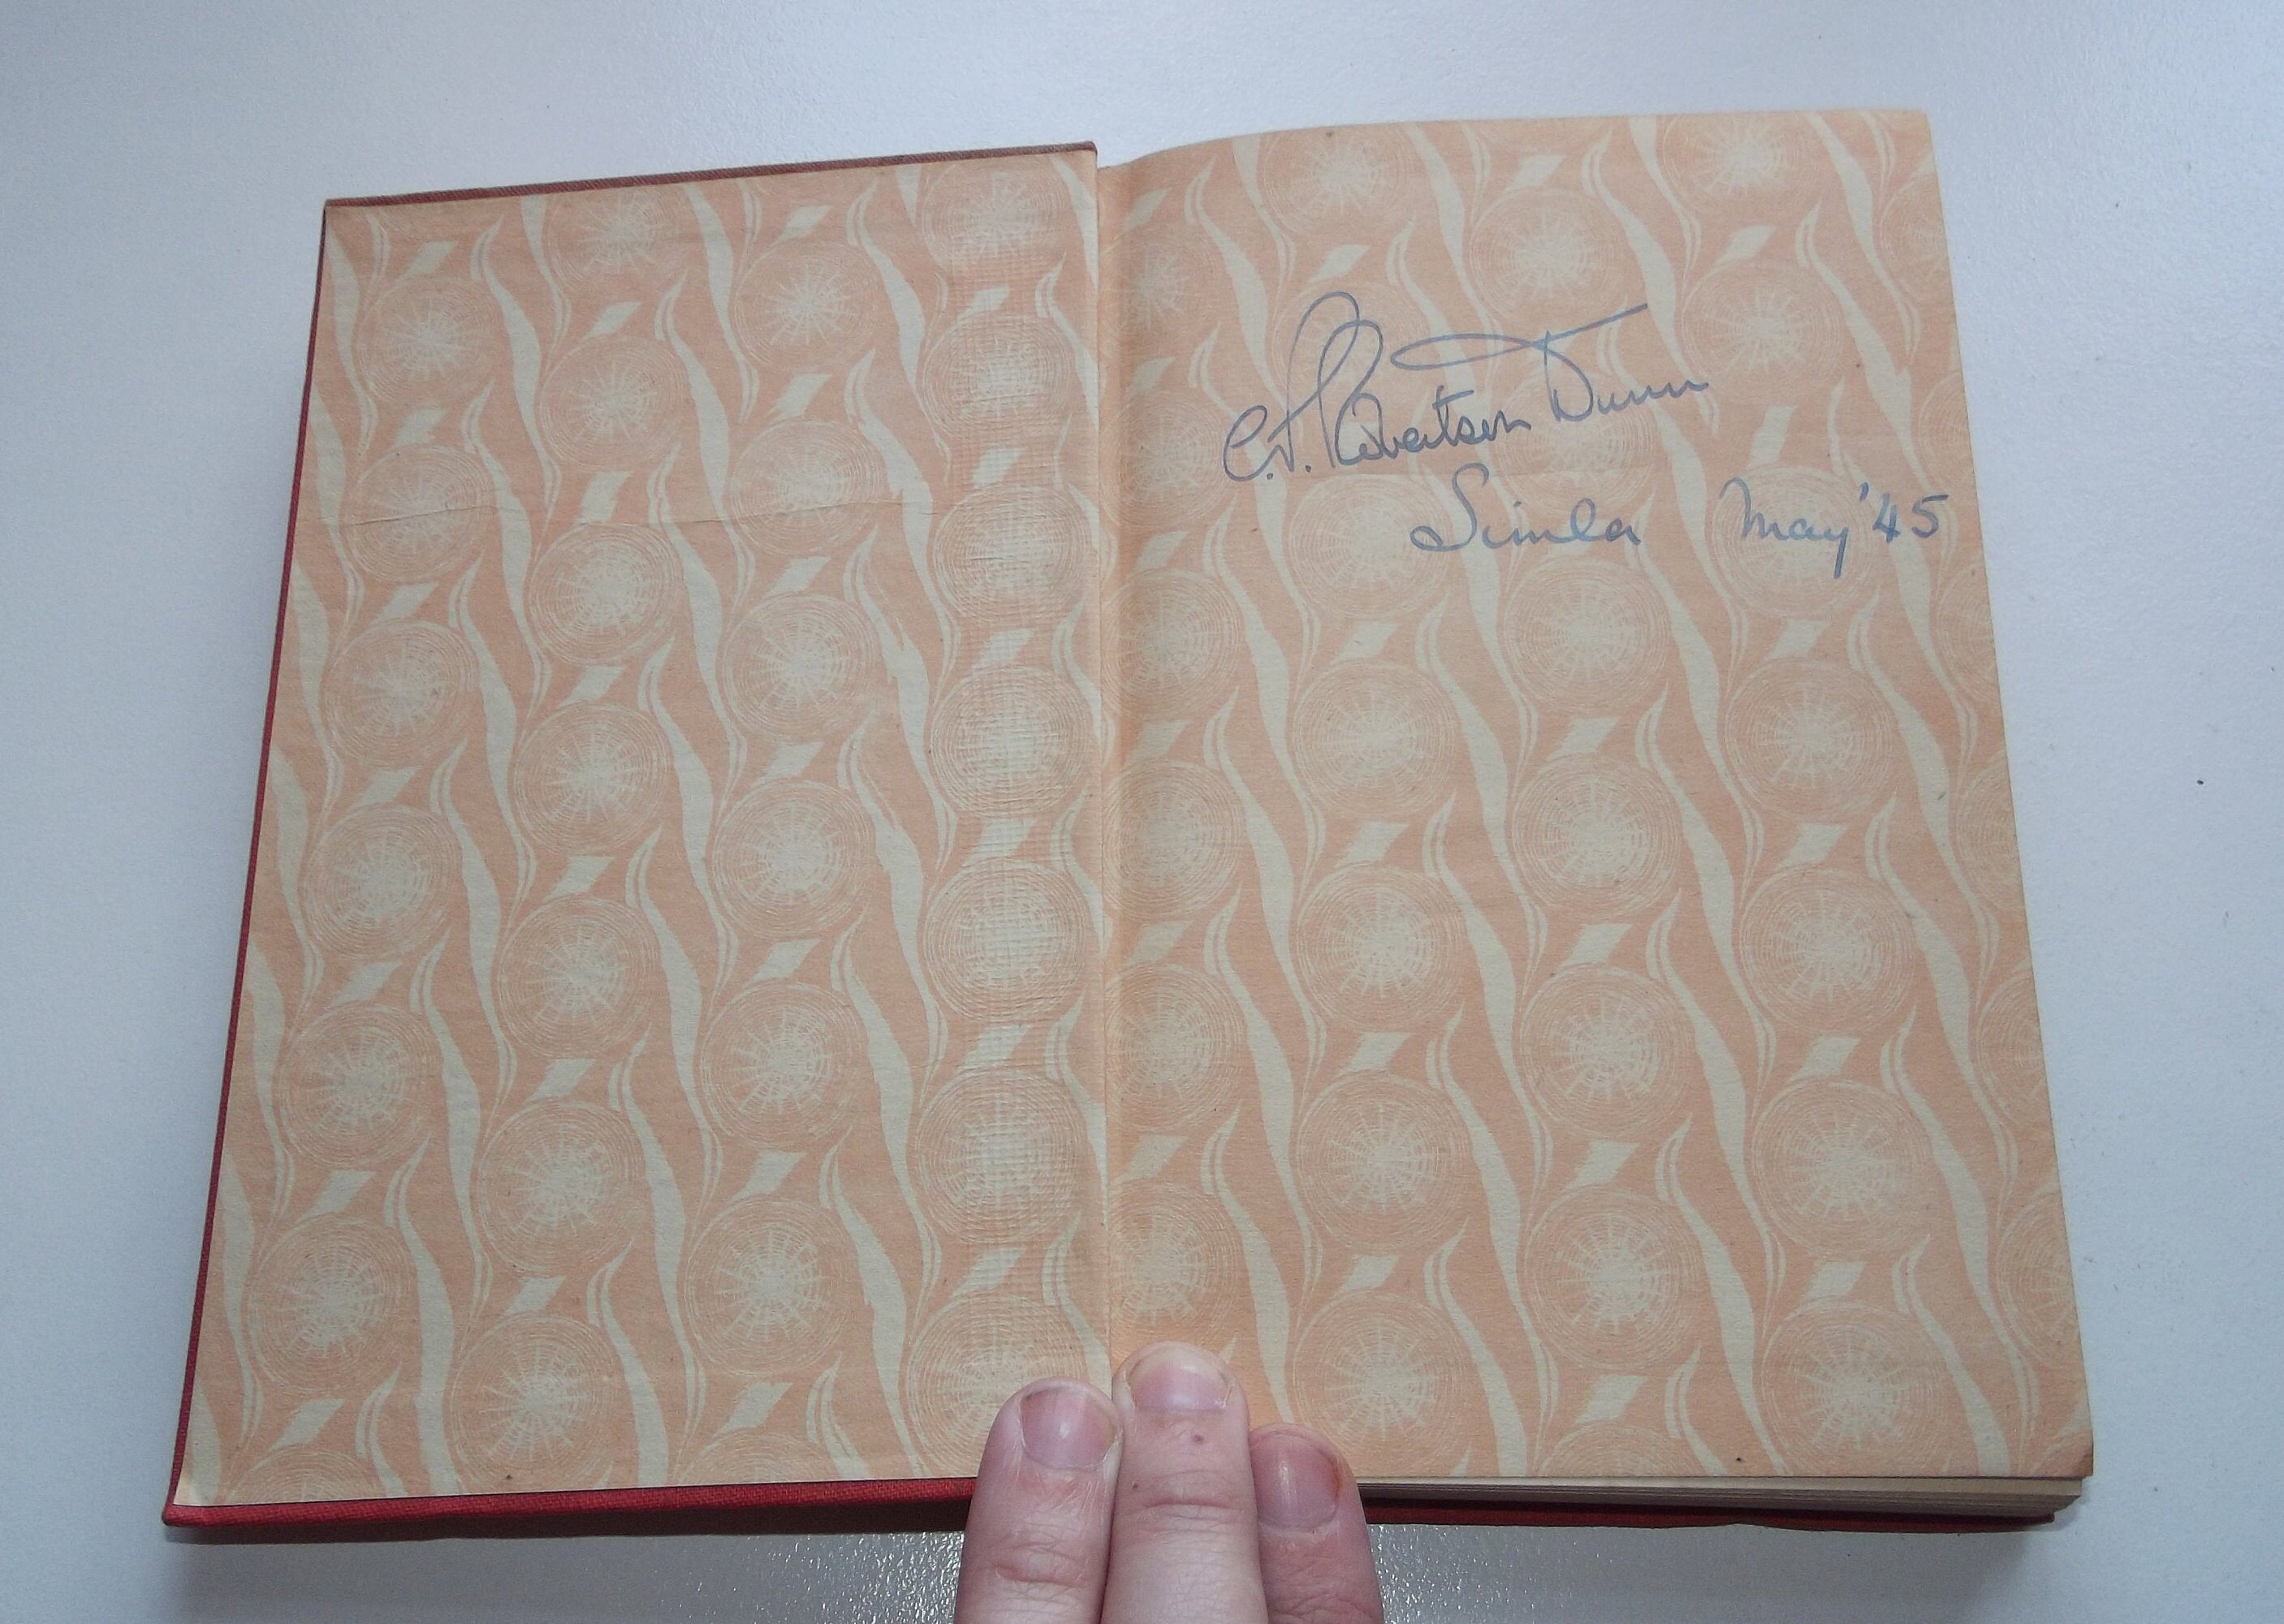 C.F. Robertson Dunn
Simla May '45